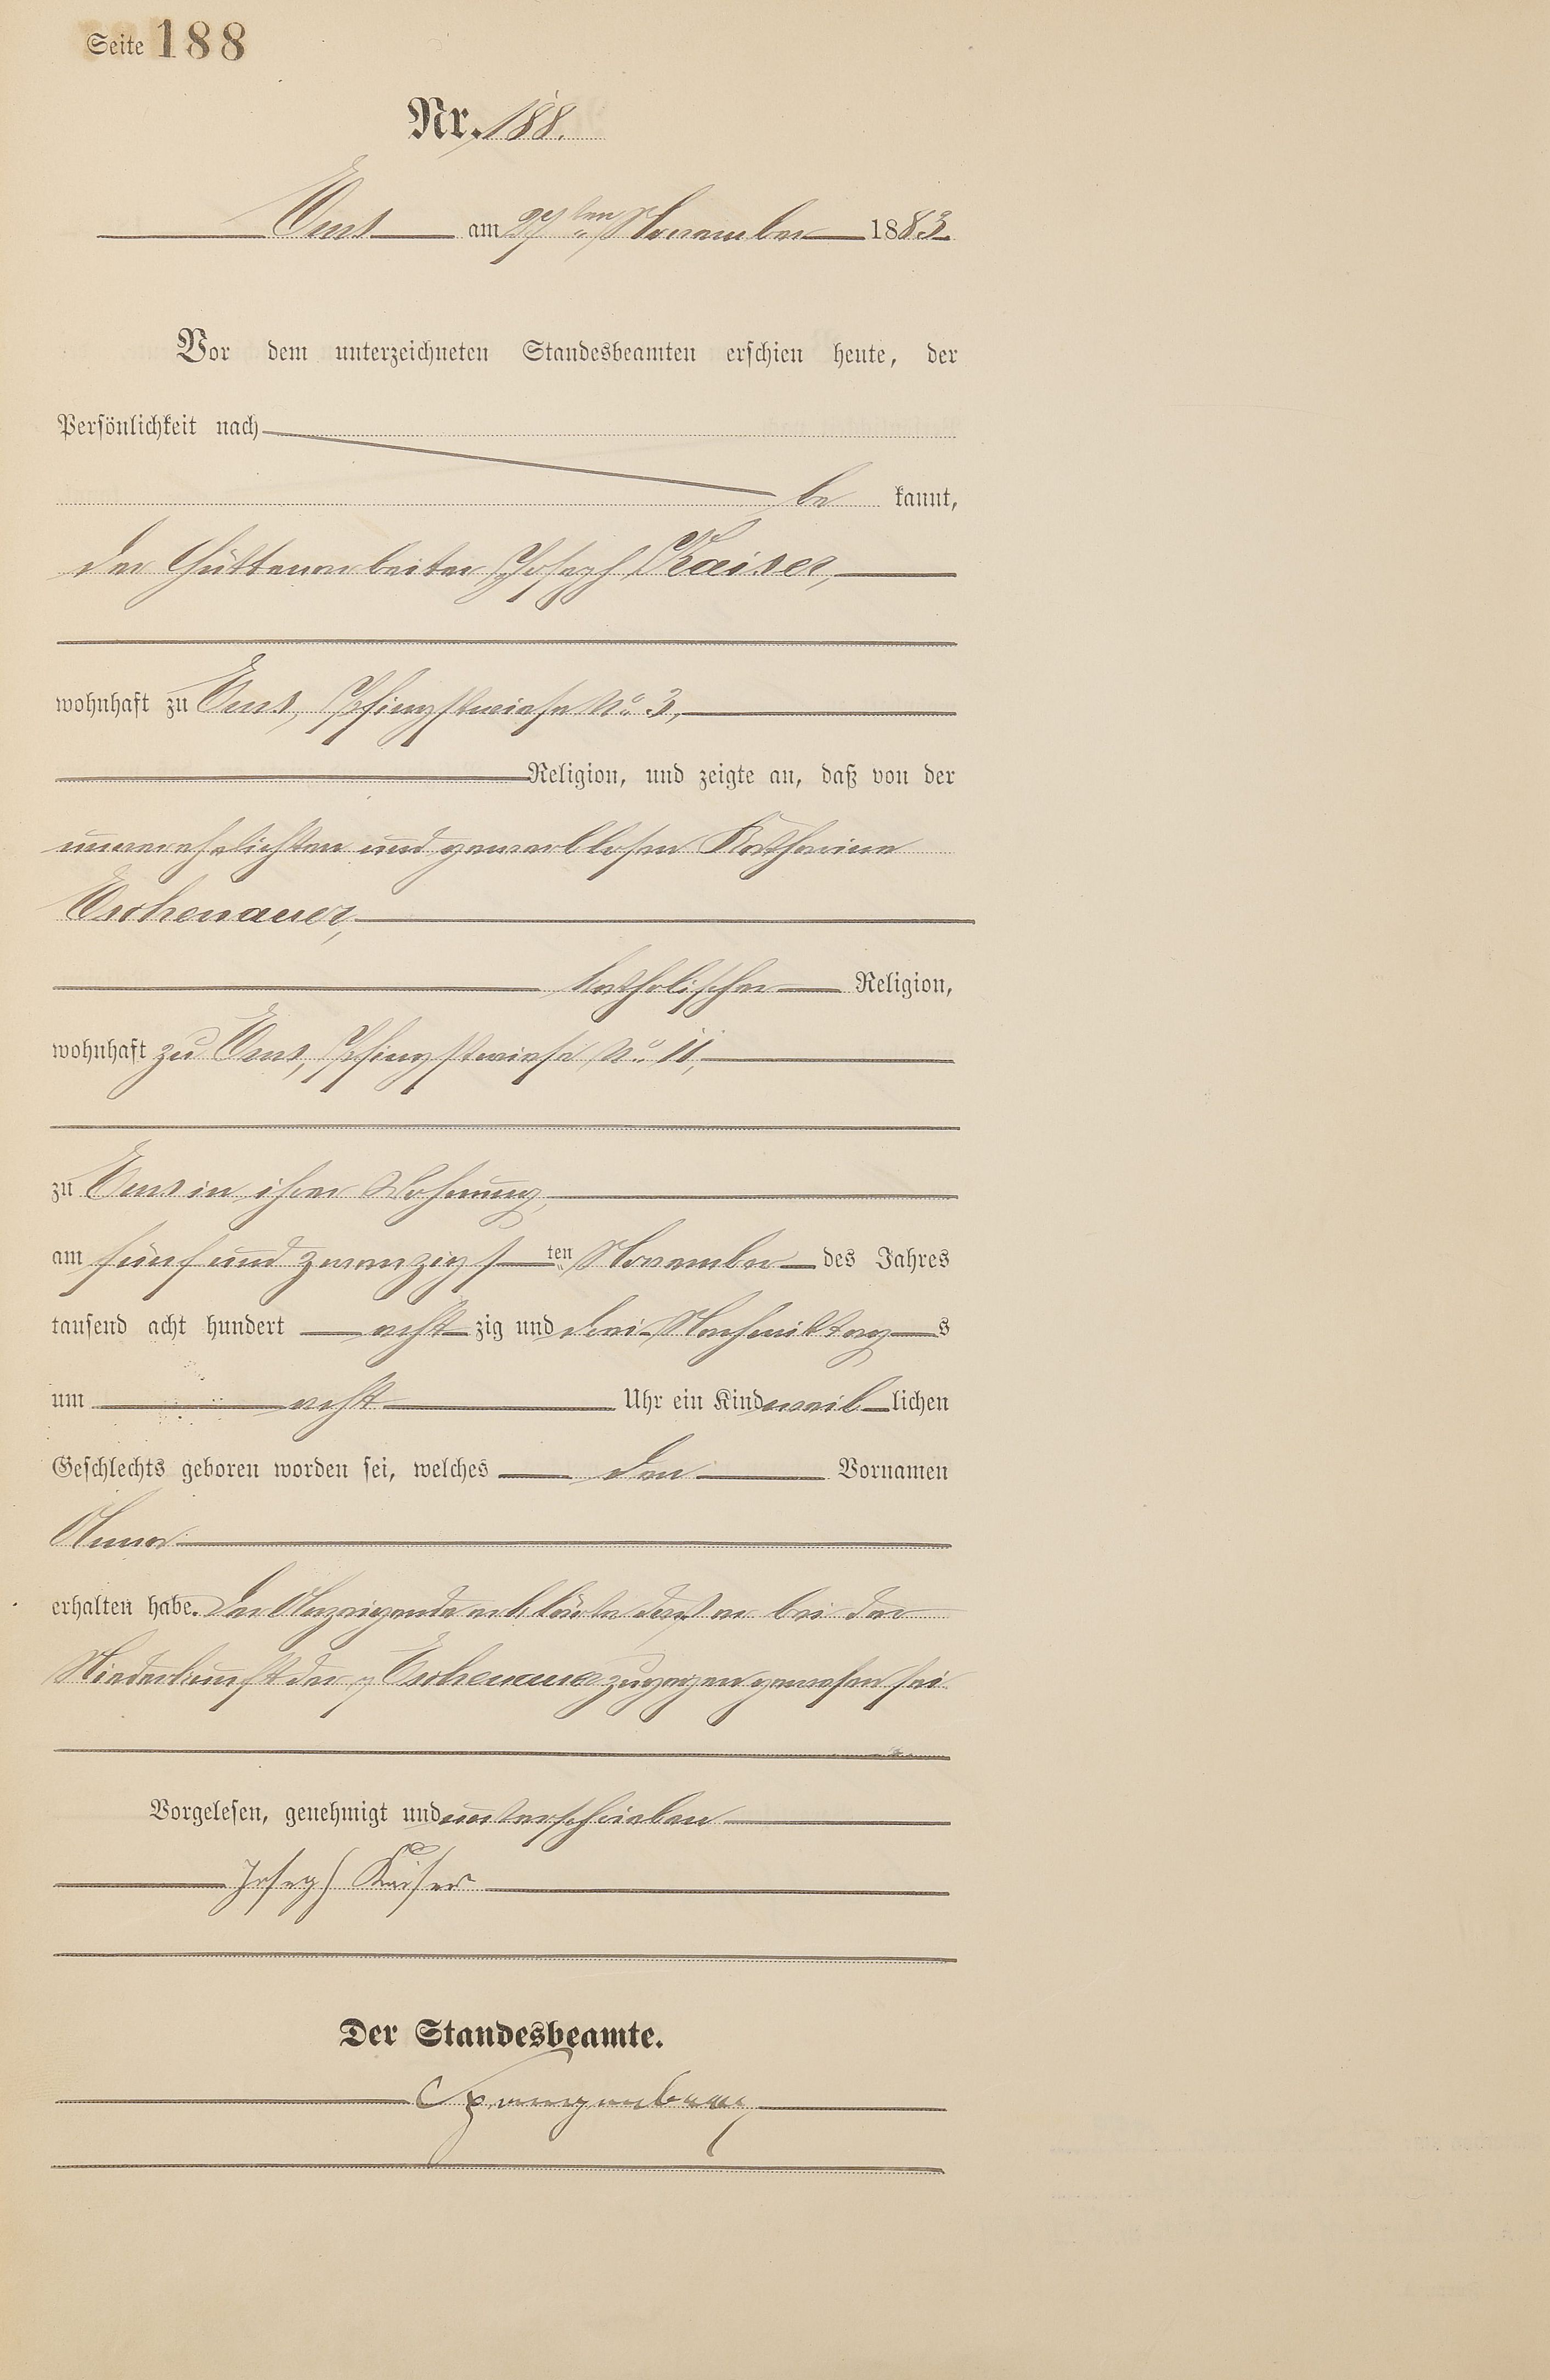 Seite 188
Nr. 188.
Ems am 27ten November 1883
Vor dem unterzeichneten Standesbeamten erschien heute, der
Persönlichkeit nach
be kannt,
der Hüttenarbeiter Joseph Kaiser,
wohnhaft zu Ems, Pfingstwiese No. 3,
Religion, und zeigte an, daß von der
unverehelichten und gewerblosen Katharine
Eschenauer,
katholischer Religion,
wohnhaft zu Ems, Pfingstwiese No. 11,
zu Ems in ihrer Wohnung,
am fünf und zwanzigsten November des Jahres
tausend acht hundert achtzig und drei Nachmittags
um acht Uhr ein Kind weiblichen
Geschlechts geboren worden sei, welches den Vornamen
Anna
erhalten habe. Der Anzeigende erklärte daß er bei der
Niederkunft der Eschenauer zugegen gewesen sei
Vorgelesen, genehmigt und unterschrieben
Joseph Kaiser
Der Standesbeamte.
Spangenberg